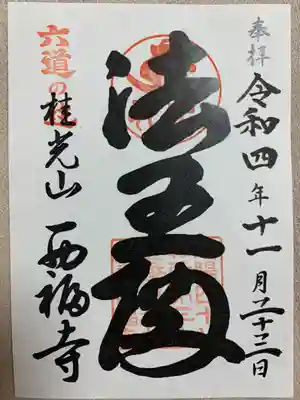 奉拝
令和四年十一月二十三日
法王
六道の
桂光山 西福寺